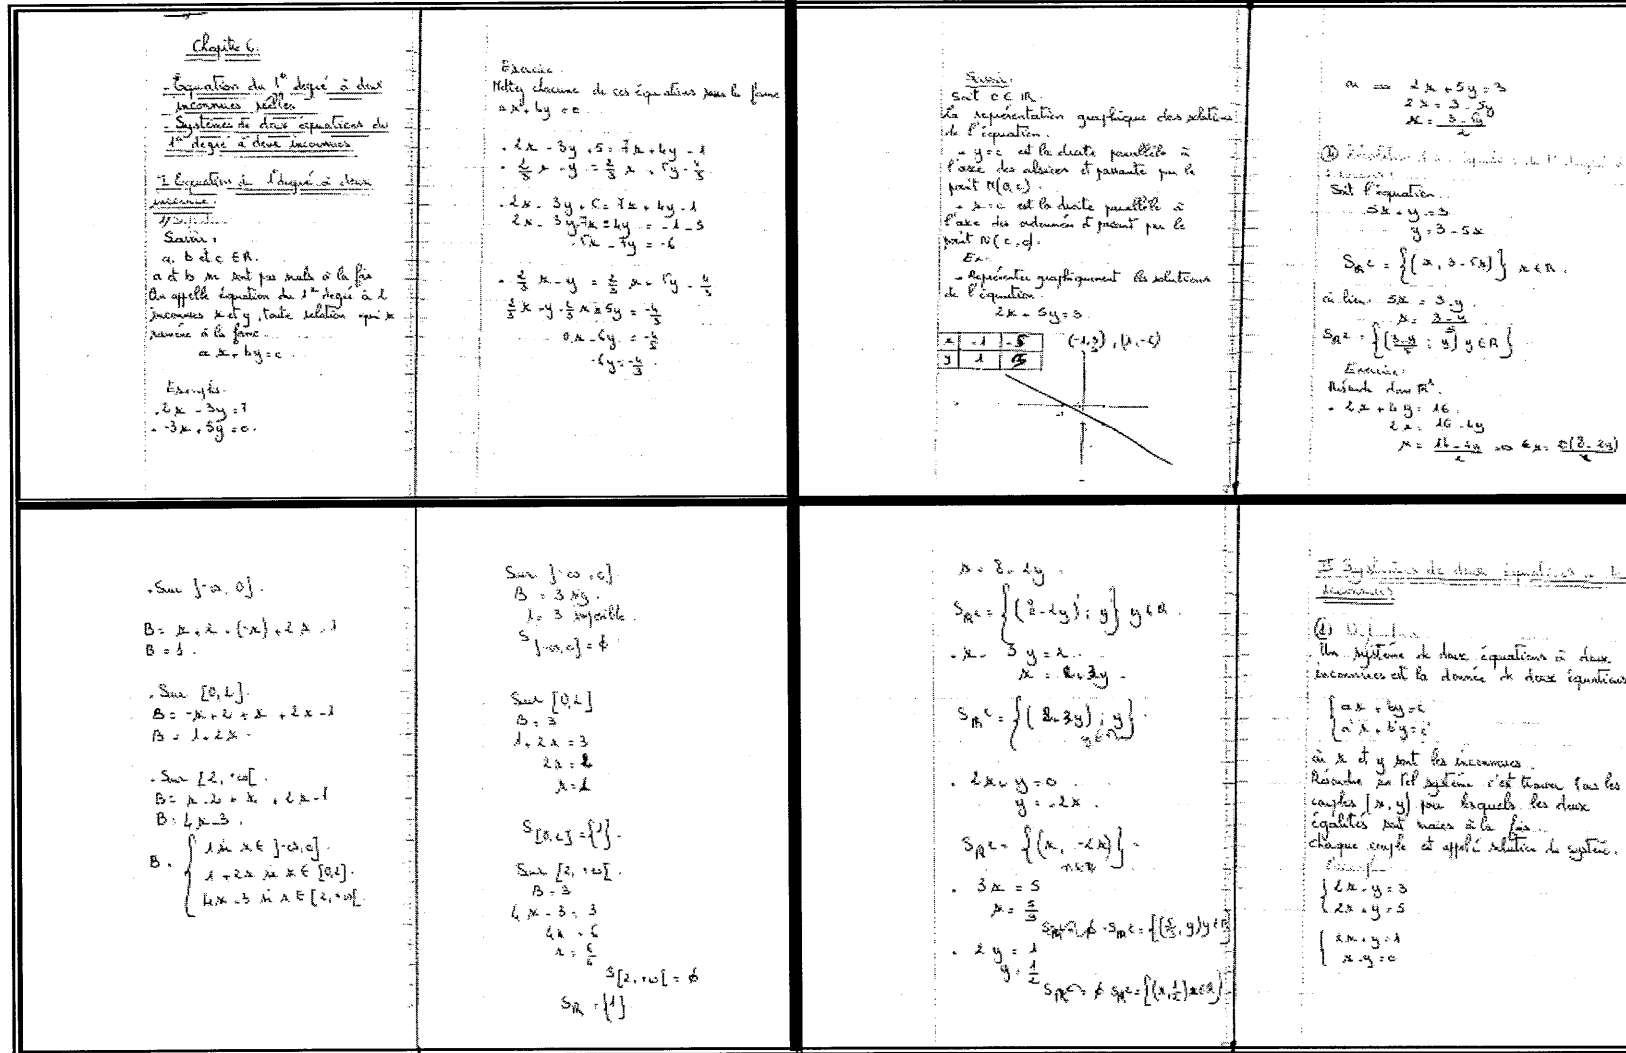 Chapitre 6.
- Équation du 1er degré à deux
inconnues réelles
- Systèmes de deux équations du
1er degré à deux inconnues
I Equation du 1er degré à deux
inconnue.
Savoir :
a, b et c ∈ R.
a et b ne sont pas nuls à la fois
On appelle équation du 1er degré à 2
inconnues x et y, toute relation qui se
ramène à la forme
ax + by = c
Exemples.
. 2x - 3y = 7
. -3x + 5y = 0.
Exercice.
Mettez chacune de ces équations sous la forme
ax + by = c
. 2x - 3y + 5 = 7x + 4y - 1
. 2/3 x - y = 2/3 x + 5y - 4/3
2x - 3y - 7x - 4y = -1 - 5
-5x - 7y = -6
. 2/3 x - y = 2/3 x + 5y - 4/3
0x - 6y = -4/3
-6y = -4/3
Savoir :
Soit c ∈ IR.
La représentation graphique des solutions
de l'équation.
. y = c est la droite parallèle à
l'axe des abscisses et passante par le
point M(0, c).
. x = c est la droite parallèle à
l'axe des ordonnées et passant par le
point N(c, 0).
Ex:
. Représentez graphiquement les solutions
de l'équation.
2x + 5y = 3
2x + 5y = 3
2x = 3 - 5y
x = 3 - 5y / 2
Soit l'équation
5x + y = 3
y = 3 - 5x
S R² = {(x, 3 - 5x)} x ∈ R.
ou bien: 5x = 3 - y
x = 3 - y / 5
S R² = {(3-y/5 ; y) y ∈ R}
Exercice:
Résoudre dans R².
. 2x + 4y = 16.
2x = 16 - 4y
x = 16 - 4y / 2
. Sur ]-∞, 0].
B = -x + 2 + (-x) + 2x - 1
B = 1.
. Sur [0, 2].
B = -x + 2 + x + 2x - 1
B = 1 + 2x.
. Sur [2, +∞[.
B = x - 2 + x + 2x - 1
B = 4x - 3.
B = { 1 si x ∈ ]-∞, 0].
1 + 2x si x ∈ [0, 2].
4x - 3 si x ∈ [2, +∞[.
Sur ]-∞, 0].
1 = 3 impossible.
S ]-∞, 0] = ∅
Sur [0, 2]
B = 3
1 + 2x = 3
2x = 2
x = 1
S [0, 2] = {1}.
Sur [2, +∞[.
B = 3
4x - 3 = 3
4x = 6
x = 6/4
S [2, +∞[ = ∅
S R = {1}
x = 8 - 2y.
S R² = {(8 - 2y) ; y} y ∈ R.
. x - 3y = 2.
x = 2 + 3y
S R² = {(2 + 3y) ; y}
y ∈ R
. 2x + y = 0
y = -2x.
S R² = {(x, -2x)}
x ∈ R
. 3x = 5
x = 5/3
S R² = {(5/3, y) y ∈ R}
. 2y = 1
y = 1/2
S R² = {(x, 1/2) x ∈ R}
II Systèmes de deux équations à 2
inconnues
Un système de deux équations à deux
inconnues est la donnée de deux équations
{ ax + by = c
a'x + b'y = c'
où x et y sont les inconnues.
Résoudre un tel système c'est trouver tous les
couples (x, y) pour lesquels les deux
égalités sont vraies à la fois.
Chaque couple est appelé solution du système.
{ 2x - y = 3
2x + y = 5
{ 2x + y = 1
x - y = 0